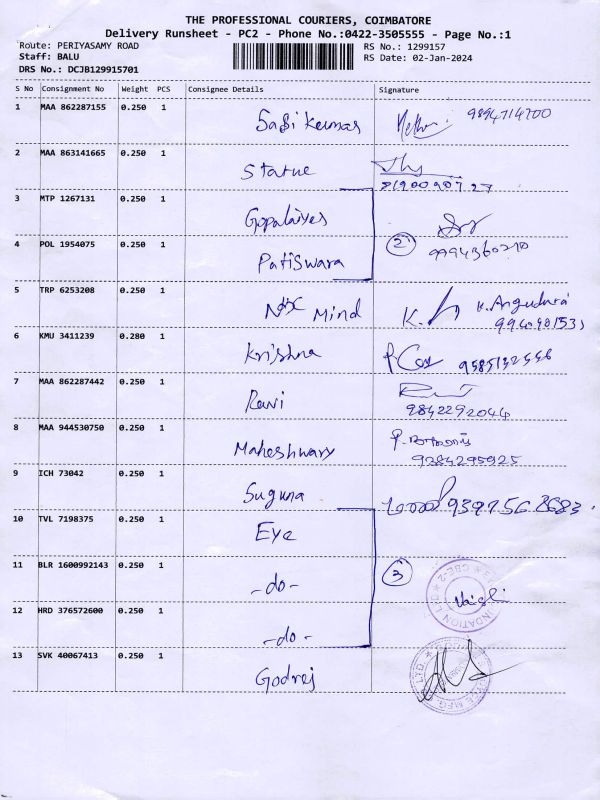 THE PROFESSIONAL COURIERS, COIMBATORE
Delivery Runsheet - PC2 - Phone No.:0422-3505555 - Page No.:1
Route: PERIYASAMY ROAD RS No.: 1299157
Staff: BALU RS Date: 02-Jan-2024
DRS No.: DCJB129915701
S No Consignment No Weight PCS Consignee Details Signature
1 MAA 862287155 0.250 1 9894714700
2 MAA 863141665 0.250 1 Statue
8190090727
3 MTP 1267131 0.250 1
4 POL 1954075 0.250 1 Patiswara 2
9994360210
5 TRP 6253208 0.250 1 Mind K.
6 KMU 3411239 0.280 1 Krishna
7 MAA 862287442 0.250 1 Ravi
9842292044
8 MAA 944530750 0.250 1 Maheshwary
9384295925
9 ICH 73042 0.250 1 Suguna
10 TVL 7198375 0.250 1 Eye
11 BLR 1600992143 0.250 1 -do- 3
12 HRD 376572600 0.250 1 -do-
13 SVK 40067413 0.250 1 Godrej